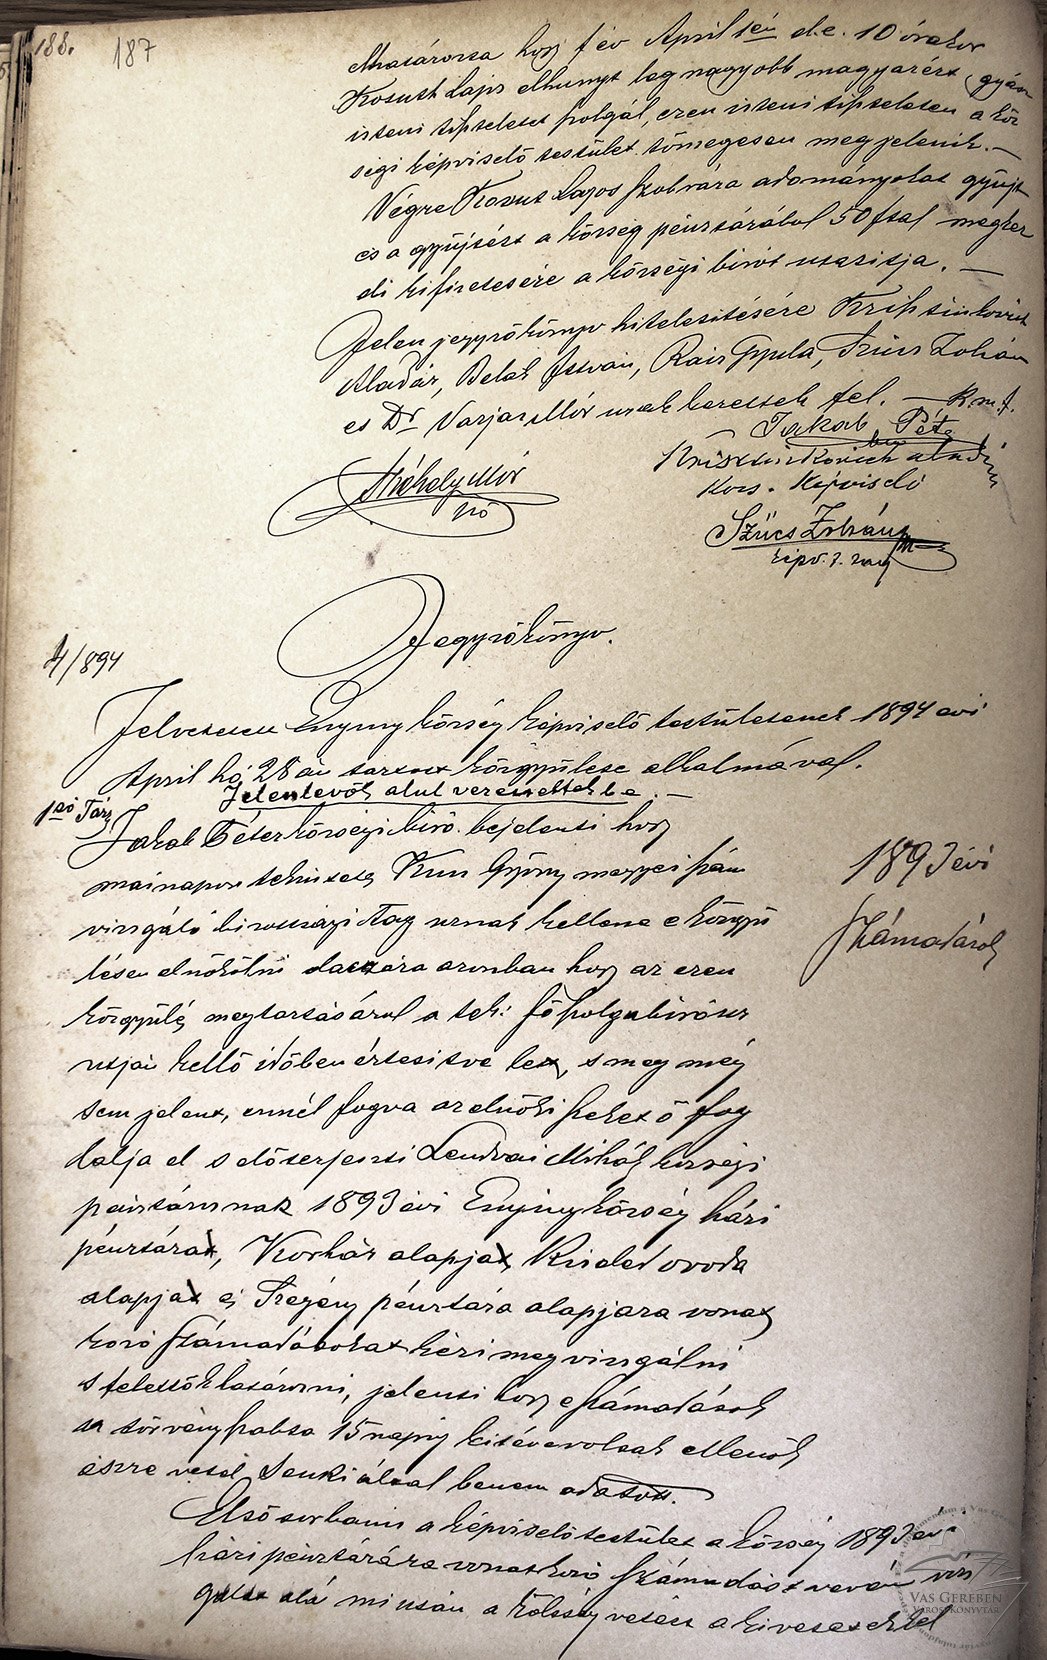 188.
187
Elhatározza hogy f év April 1én d.e. 10 órakor
Kosuth Lajos elhunyt leg nagyobb magyarért gyász
isteni tiszteletet szolgál, ezen isteni tiszteleten a köz
ségi képviselö testület tömegesen meg jelenik. —
Végre Kosut Lajos szobrára adományokat gyüjt
és a gyüjtést a község pénztárábol 50 ftal megkez
di kifizetésére a községi birót utasitja. —
Jelen jegyzökönyv hitelesitésére Krisztinkovich
Aladár, Belak Istvan, Rais Gyula, Szücs Zoltán
es Dr Varjas Mór urak kéretnek fel. — k.m.f.
Jakab Péter
biro
Krisztinkovich Aladár
Közs. Képviselö
Mihály Mór
jzö
Szücs Zoltán
képv. t. tag
Jegyzökönyv.
4/894
Felvétetett Enying község képviselö testületenek 1894 évi
April hó 28 án tartott közgyülése alkalmával.
Jelenlevök alul vezetettek be. —
1sö Tárgy
Jakab Péter községi biró bejelenti hogy
mai napon tekintetes Kun György megyei szám
vizsgáló bizottsági tag urnak kellene e közgyü
lésen elnökölni daczára azonban hogy az ezen
közgyülés megtartásárul a tek: föszolgabiró ur
utján kellö idöben értesitve lett, s meg még
sem jelent, ennél fogva az elnöki széket ö fog
lalja el s elöterjeszti Lendvai Mihály községi
pénztárosnak 1893 évi Enying község házi
pénztára, Korház alapja, Kisded ovoda
alapja és Szegény pénztára alapjara vonat
kozó számadásokat kéri meg vizsgálni
s felettök határozni, jelenti hogy e számadások
a törvényszabta 15 napig kitéve voltak ellenök
észre vétel senki által be nem adatott.
Elsö sorbani a képviselö testület a község 1893 évi
házi pénztárára vonatkozó számadást vevén vizs
gálat alá miután a költség vetés a kivetésekkel
1893 évi
számadások
VAS GEREBEN
VÁROSI KÖNYVTÁR